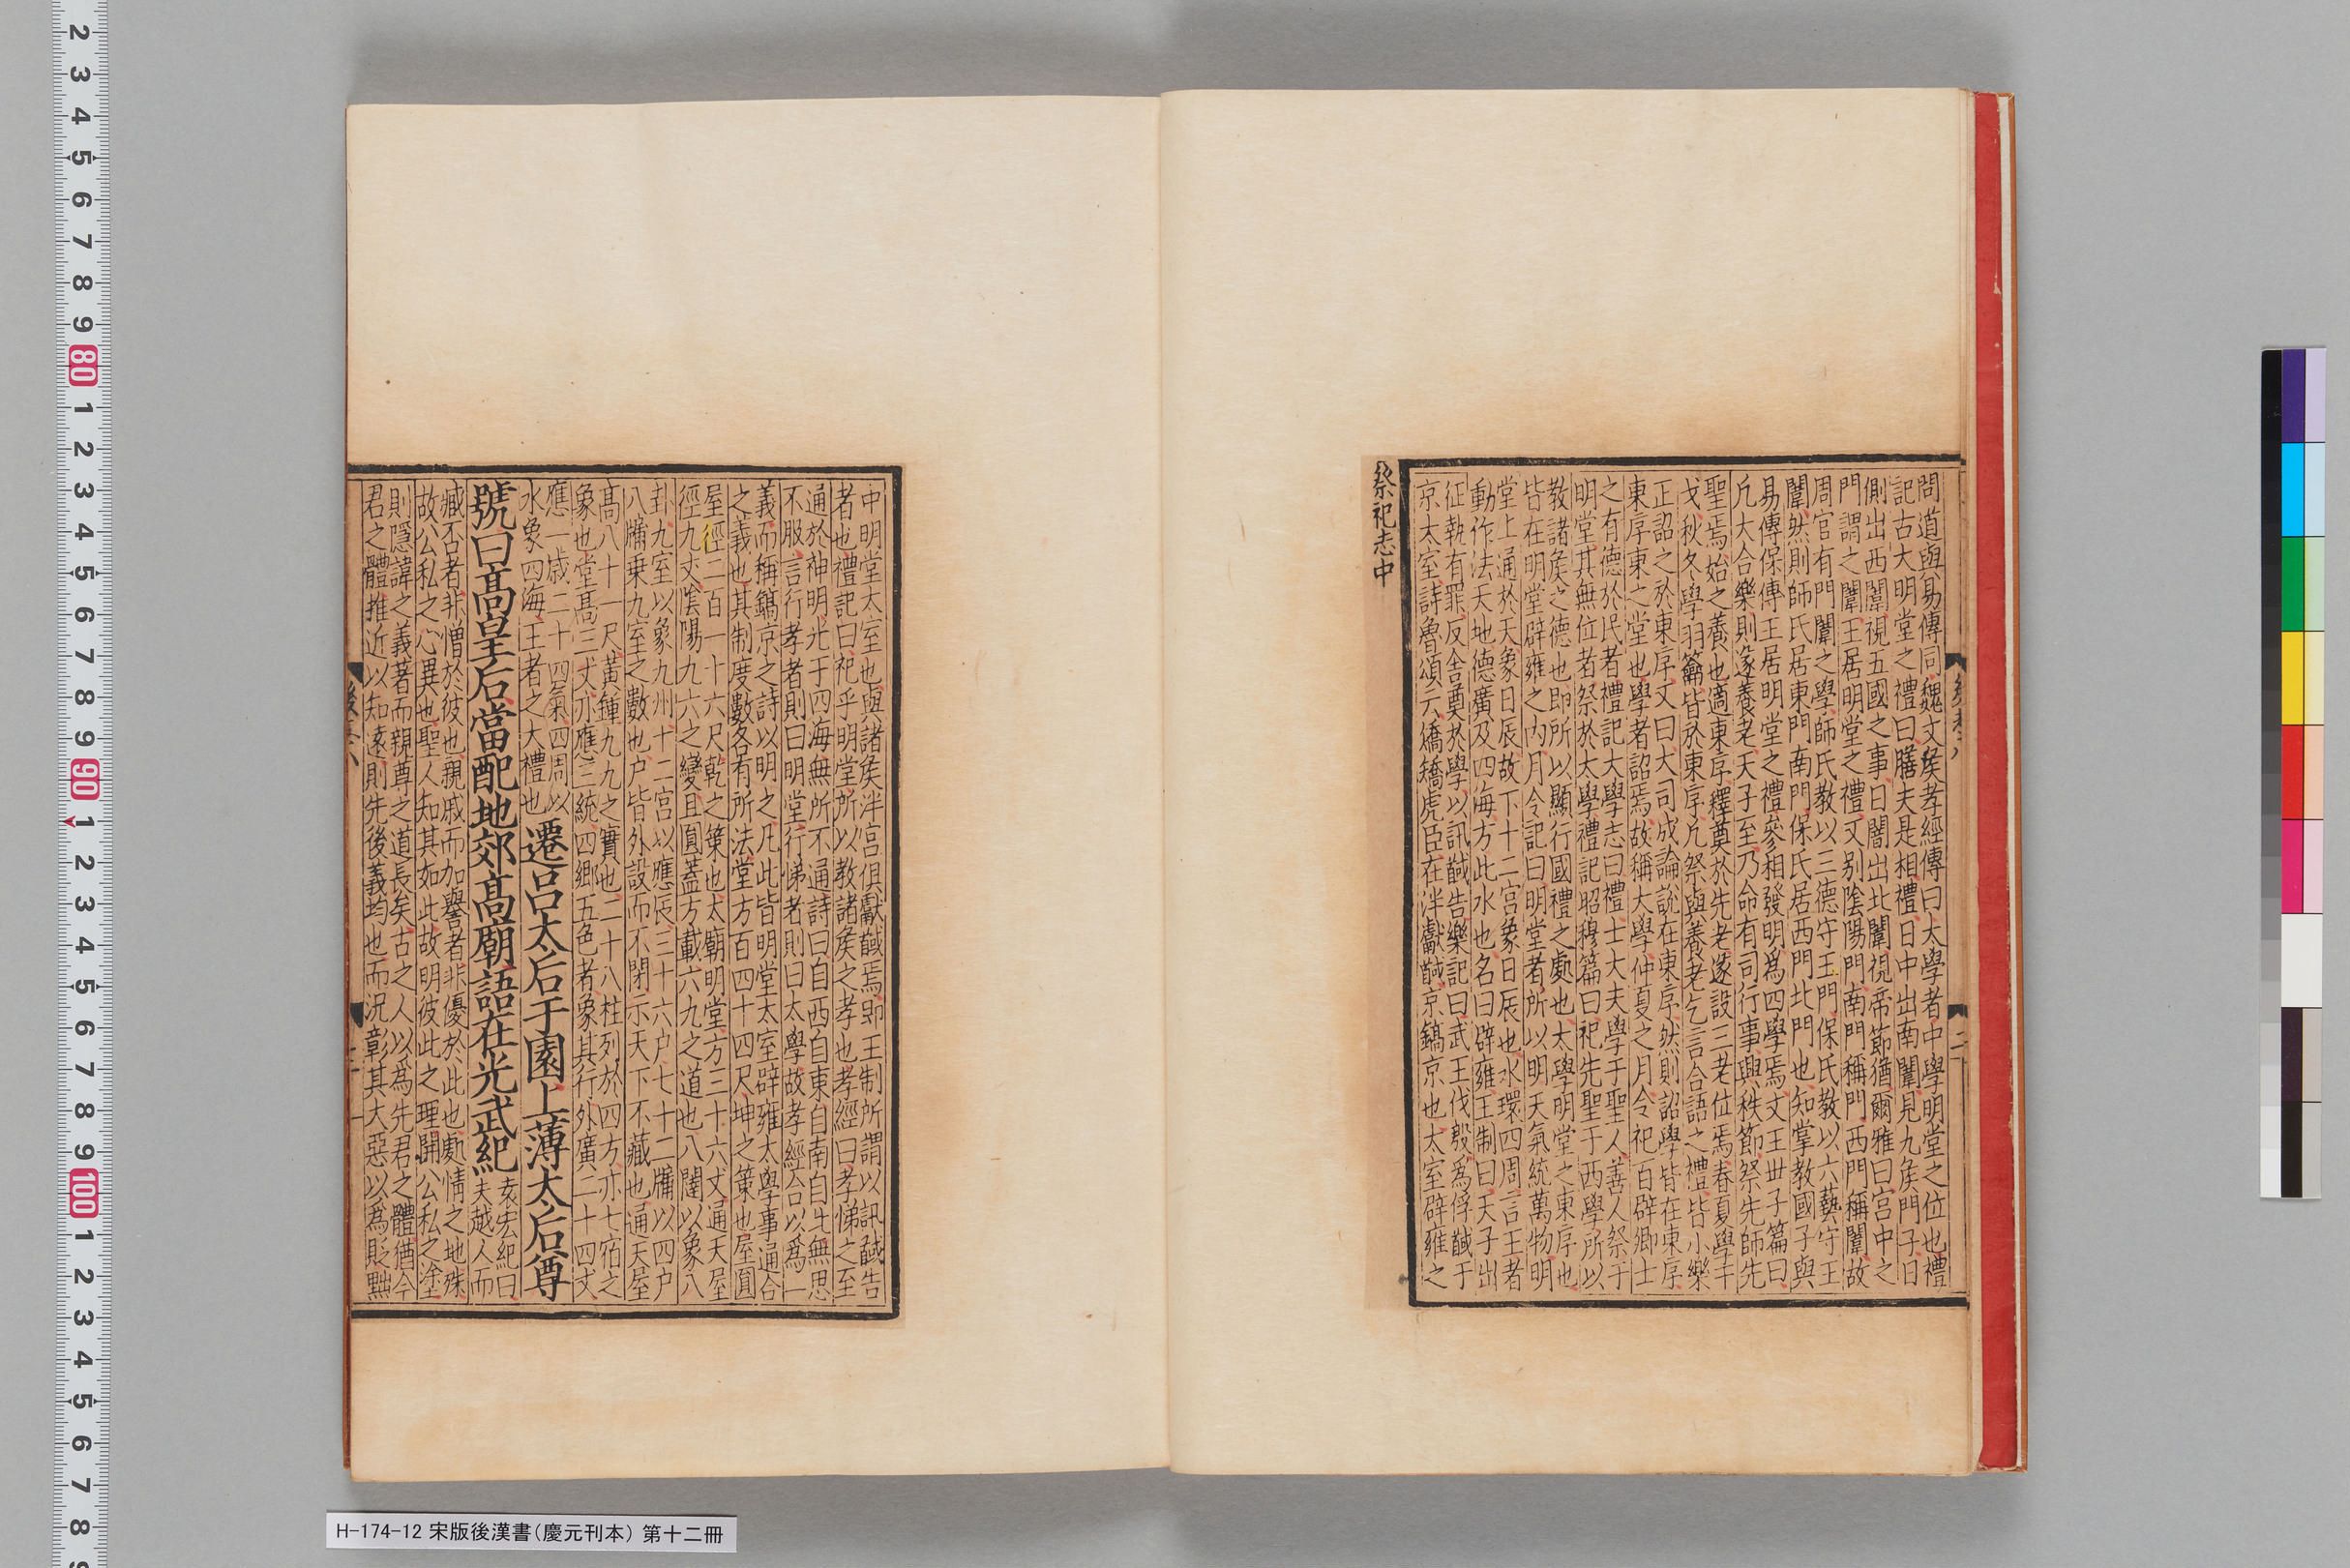 問道與易傳同魏文侯孝經傳曰太學者中學明堂之位也禮
記古大明堂之禮曰膳夫是相禮日中出南闈見九侯門子日
側出西闈視五國之事日闇出北闈視帝節猶爾雅曰宮中之
門謂之闈王居明堂之禮又別陰陽門南門稱門西門稱闈故
周官有門闈之學師氏教以三德守王門保氏教以六藝守王
闈然則師氏居東門南門保氏居西門北門也知掌教國子與
易傳保傅王居明堂之禮參相發明為四學焉文王世子篇曰
凡大合樂則遂養老天子至乃命有司行事興秩節祭先師先
聖焉始之養也適東序釋奠於先老遂設三老位焉春夏學干
戈秋冬學羽籥皆於東序凡祭與養老乞言合語之禮皆小樂
正詔之於東序又曰大司成論說在東序然則詔學皆在東序
東序東之堂也學者詔焉故稱大學仲夏之月令祀百辟卿士
之有德於民者禮記大學志曰禮士大夫學于聖人善人祭于
明堂其無位者祭於太學禮記昭穆篇曰祀先聖于西學所以
教諸侯之德也即所以顯行國禮之處也太學明堂之東序也
皆在明堂辟雍之內月令記曰明堂者所以明天氣統萬物明
堂上通於天象日辰故下十二宮象日辰也水環四周言王者
動作法天地德廣及四海方此水也名曰辟雍王制曰天子出
征執有罪反舍奠於學以訊馘告樂記曰武王伐殷為俘馘于
京太室詩魯頌云矯矯虎臣在泮獻馘京鎬京也太室辟雍之
祭祀志中
中明堂太室也與諸侯泮宮俱獻馘焉即王制所謂以訊馘告
者也禮記曰祀乎明堂所以教諸侯之孝也孝經曰孝悌之至
通於神明光于四海無所不通詩曰自西自東自南自北無思
不服言行孝者則曰明堂行悌者則曰太學故孝經合以為一
義而稱鎬京之詩以明之凡此皆明堂太室辟雍太學事通合
之義也其制度數各有所法堂方百四十四尺坤之策也屋圓
屋徑二百一十六尺乾之策也太廟明堂方三十六丈通天屋
徑九丈陰陽九六之變且圓蓋方載六九之道也八闥以象八
卦九室以象九州十二宮以應辰三十六户七十二牖以四户
八牖乗九室之數也户皆外設而不閉示天下不藏也通天屋
髙八十一尺黃鍾九九之實也二十八柱列於四方亦七宿之
象也堂髙三丈亦應三統四鄉五色者象其行外廣二十四丈
應一歲二十四氣四周以
水象四海王者之大禮也
遷呂太后于園上薄太后尊
號曰髙皇后當配地郊髙廟語在光武紀
袁宏紀曰
夫越人而
臧否者非憎於彼也親戚而加譽者非優於此也處情之地殊
故公私之心異也聖人知其如此故明彼此之理開公私之塗
則隱諱之義著而親尊之道長矣古之人以為先君之體猶今
君之體推近以知遠則先後義均也而況彰其大惡以為貶黜
H-174-12 宋版後漢書(慶元刊本) 第十二冊